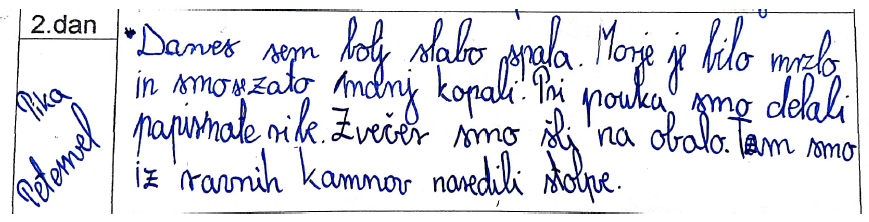 2.dan
Danes sem bolj slabo spala. Morje je bilo mrzlo
in smo se zato manj kopali. Pri pouku smo delali
papirnate ribe. Zvečer smo šli na obalo. Tam smo
iz ravnih kamnov naredili stolpe.
Pika
Peternel